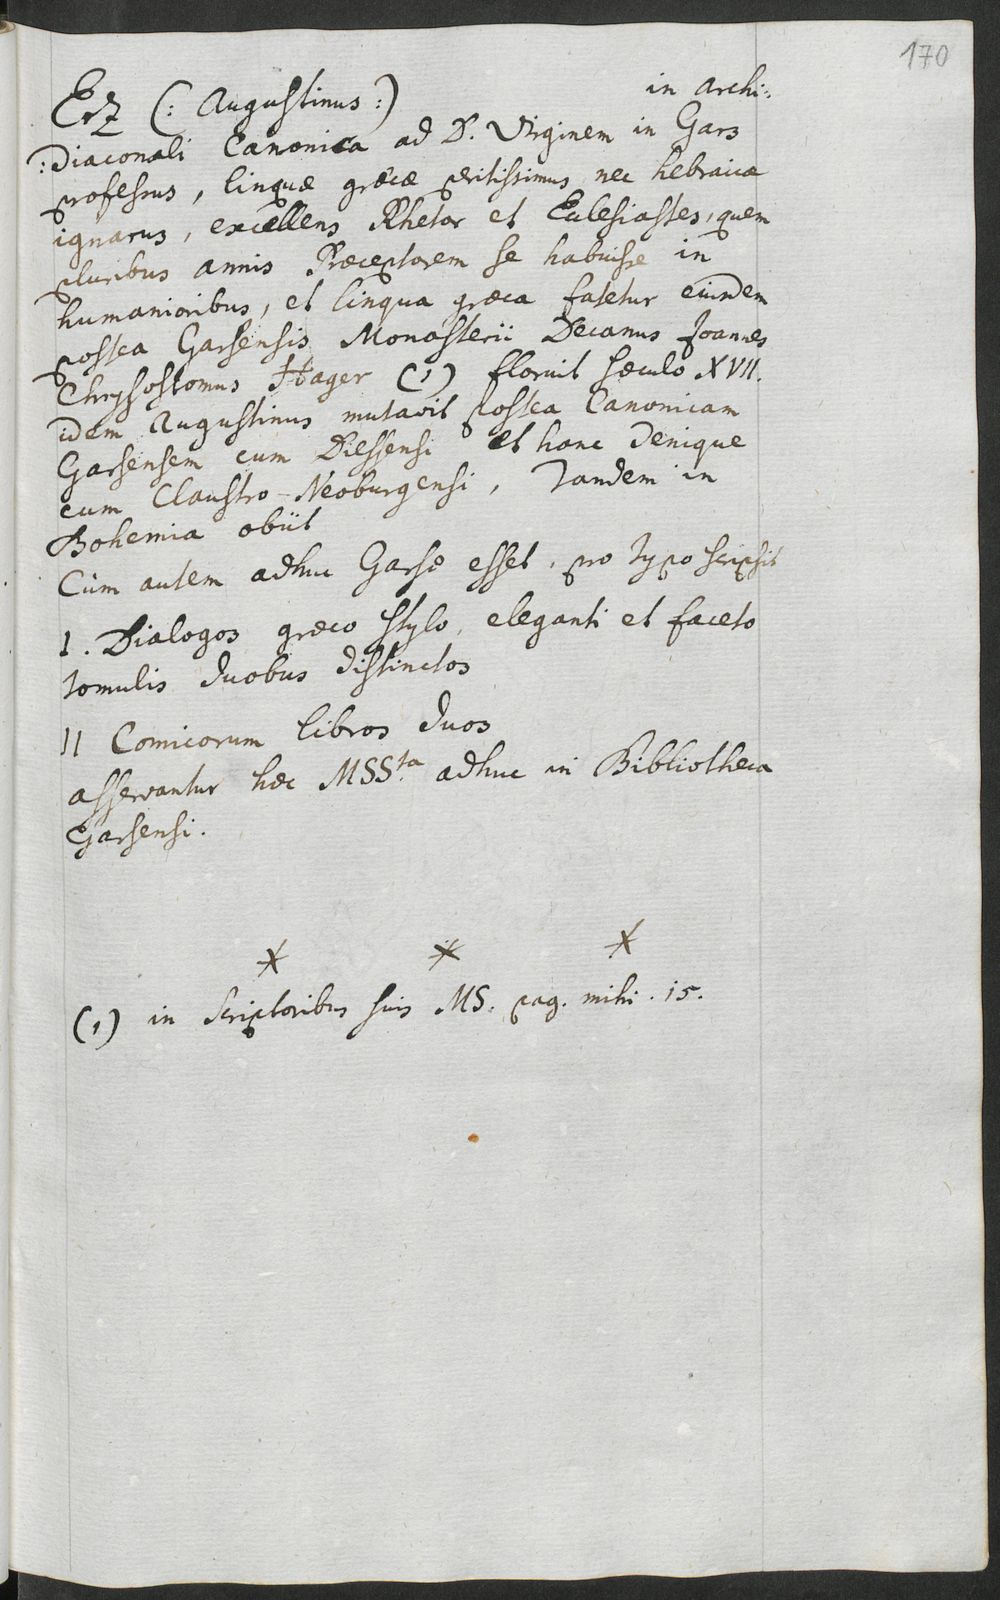 170
Erz (: Augustinus :) in Archi:
:Diaconali Canonica ad D. Virginem in Gars
professus, linguæ græcæ peritissimus nec hebraicæ
ignarus, excellens Rhetor et Ecclesiastes, quem
pluribus annis Præceptorem se habuisse in
humanioribus, et lingua græca fatetur eiusdem
postea Garsensis Monasterii Decanus Joannes
Chrysostomus Hager (1) floruit sæculo XVII.
idem Augustinus mutavit postea Canonicam
Garsensem cum Diessensi et hanc denique
cum Claustro-Neoburgensi, Tandem in
Bohemia obiit
Cum autem adhuc Garsæ esset, pro typo scripsit
I. Dialogos græco stylo, eleganti et faceto
tomulis duobus distinctos
II Comicorum libros duos
asservantur hæc MSSta adhuc in Bibliotheca
Garsensi.
(1) in Scriptoribus suis MS. pag. mihi. 15.